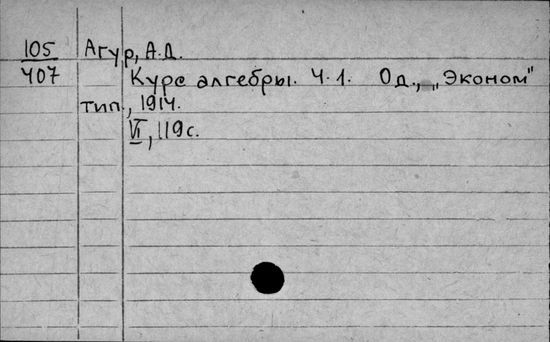 105 Агур, А.Д.
407 Курс алгебры. Ч.1. Од., „Эконом"
тип., 1914.
VI, 119 с.